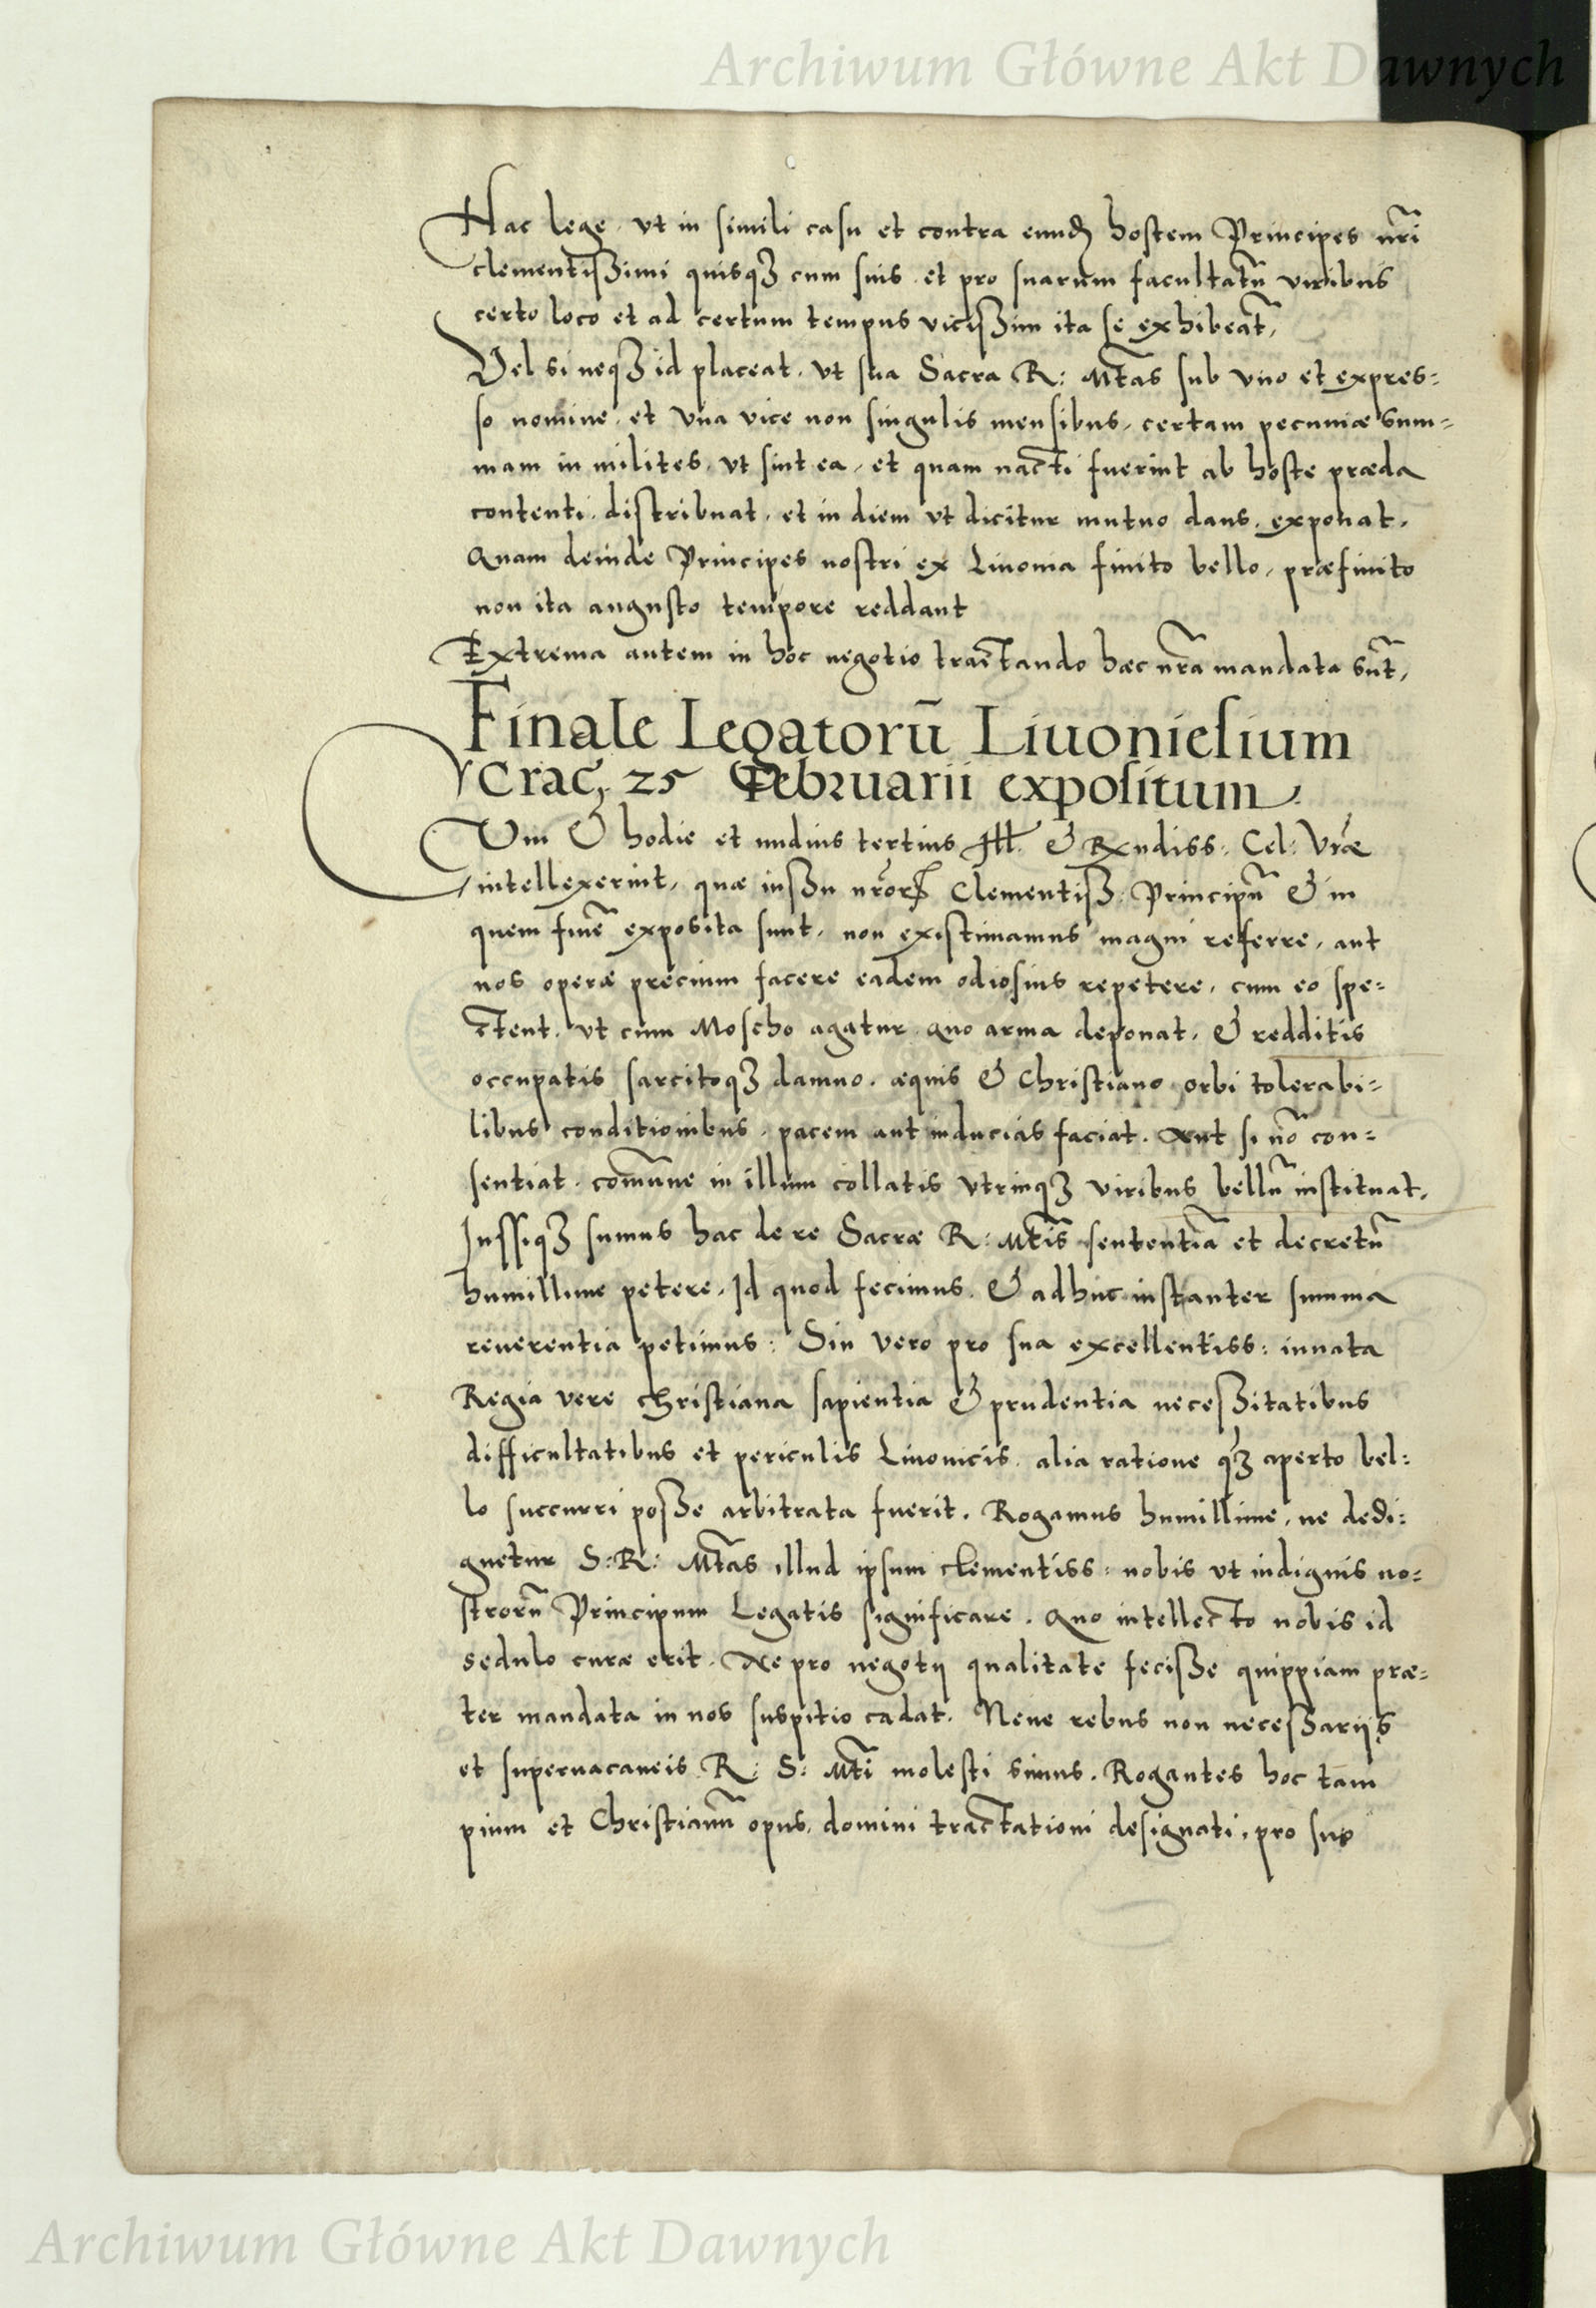 Archiwum Główne Akt Dawnych
Hac lege, vt in simili casu et contra eundẽ hostem Principes nr̃i
clementißimi quisqꝫ cum suis et pro suarum facultatũ viribus
certo loco et ad certum tempus vicißim ita se exhibeãt,
Vel si neqꝫ id placeat, vt sua Sacra R: Mt̃as sub vno et expres=
so nomine, et vna vice non singulis mensibus, certam pecuniæ sum=
mam in milites, vt sint ea, et quam nacti fuerint ab hoste præda
contenti, distribuat, et in diem vt dicitur mutuo dans, exponat.
Quam deinde Principes nostri ex Liuonia finito bello, præfinito
non ita angusto tempore reddant
Extrema autem in hoc negotio tractando hæc nr̃a mandata sũt,
Finale Legatorũ Liuoniẽsium
Crac, 25 Februarii expositum.
Cum & hodie et nudius tertius Ill. & Rndiss: Cel: Vr̃æ
intellexerint, quæ iußu nr̃orꝝ Clementiß: Principũ & in
quem finẽ exposita sunt, non existimamus magni referre, aut
nos operæ precium facere eadem odiosius repetere, cum eo spe=
ctent, vt cum Moscho agatur quo arma deponat, & redditis
occupatis sarcitoqꝫ damno, æquis & Christiano orbi tolerabi=
libus conditionibus, pacem aut inducias faciat. Aut si nõ con=
sentiat, com̃une in illum collatis vtrinqꝫ viribus bellũ instituat,
Iussiqꝫ sumus hac de re Sacræ R: Mt̃is sententiã et decretũ
humillime petere, Id quod fecimus, & adhuc instanter summa
reuerentia petimus: Sin vero pro sua excellentiss: innata
Regia vere christiana sapientia & prudentia neceßitatibus
difficultatibus et periculis Liuonicis, alia ratione qꝫ̃ aperto bel=
lo succurri poße arbitrata fuerit, Rogamus humillime, ne dedi=
gnetur S: R: Mt̃as illud ipsum clementiss: nobis vt indignis no=
strorũ Principum Legatis significare. Quo intellecto nobis id
sedulo curæ erit, Ne pro negotij qualitate feciße quippiam præ=
ter mandata in nos suspitio cadat. Neue rebus non neceßarijs
et superuacaneis R: S: Mt̃i molesti simus. Rogantes hoc tam
pium et Christianũ opus, domini tractationi designati, pro suo
Archiwum Główne Akt Dawnych